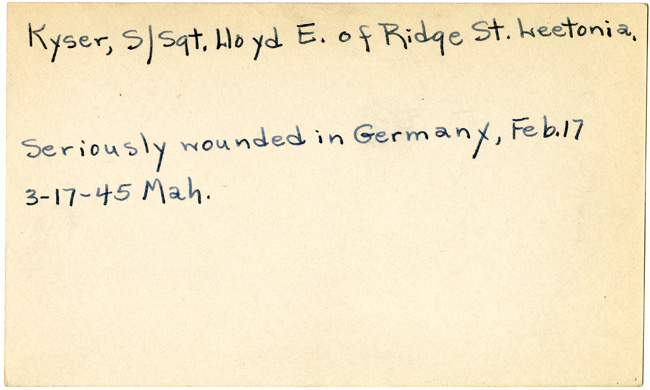 Kyser, S/Sgt. Lloyd E. of Ridge St. Leetonia.
Seriously wounded in Germany, Feb. 17
3-17-45 Mah.